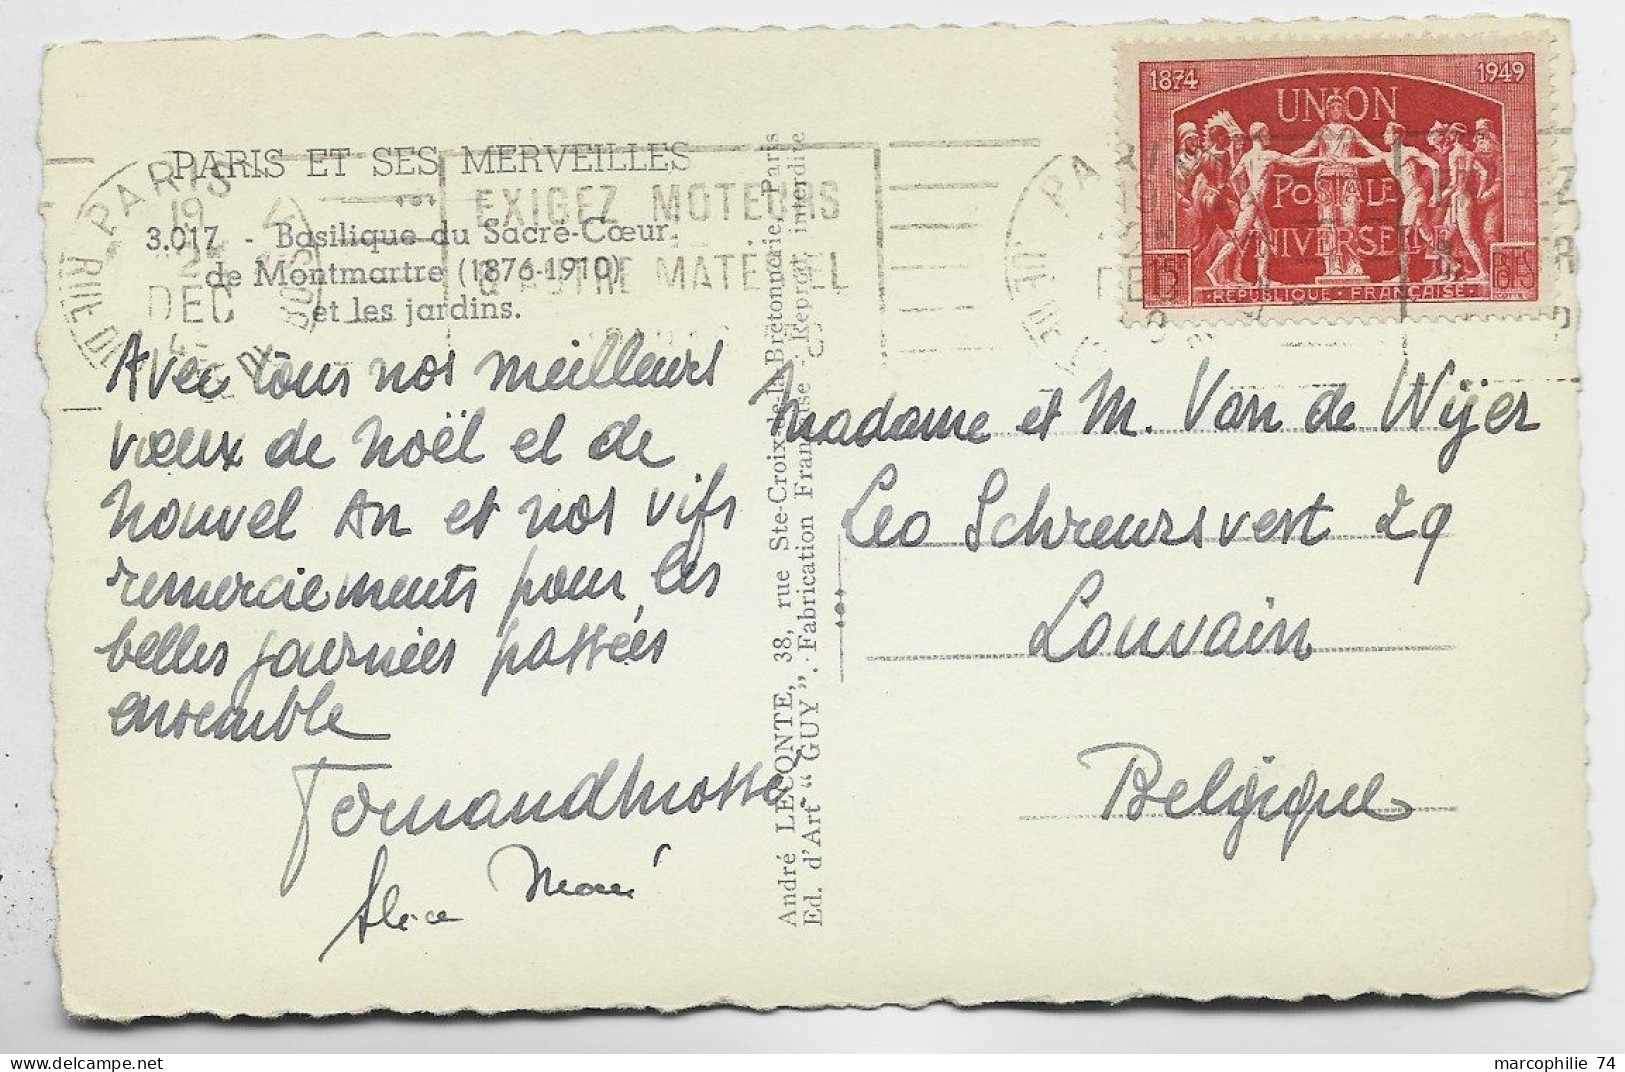 PARIS ET SES MERVEILLES
3.017 - Basilique du Sacré-Cœur
de Montmartre (1876-1910)
et les jardins.
PARIS
19
DEC
EXIGEZ MOTEURS
Avec tous nos meilleurs
vœux de Noël et de
Nouvel An et nos vifs
remerciements pour les
belles journées passées
ensemble
Alice
André LECONTE, 38, rue Ste-Croix-de-la-Bretonnerie, Paris
Ed. d'Art “ GUY ”. Fabrication Française - Reprod. interdite
1874 1949
UNION
POSTALE
UNIVERSELLE
15F
REPUBLIQUE FRANÇAISE
Madame et M. Van de Wijer
Leo Schreursvest 29
Louvain
Belgique
marcophilie 74